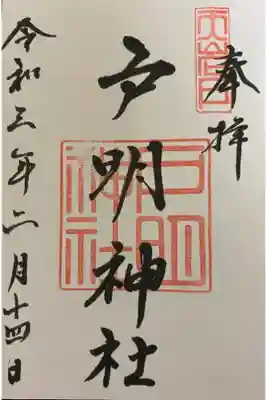 奉拝
戸明神社
戸明神社
令和三年二月十四日